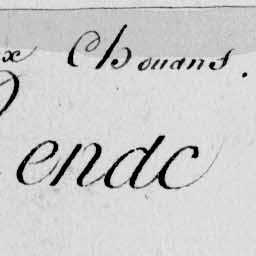 x Chouans.
endc